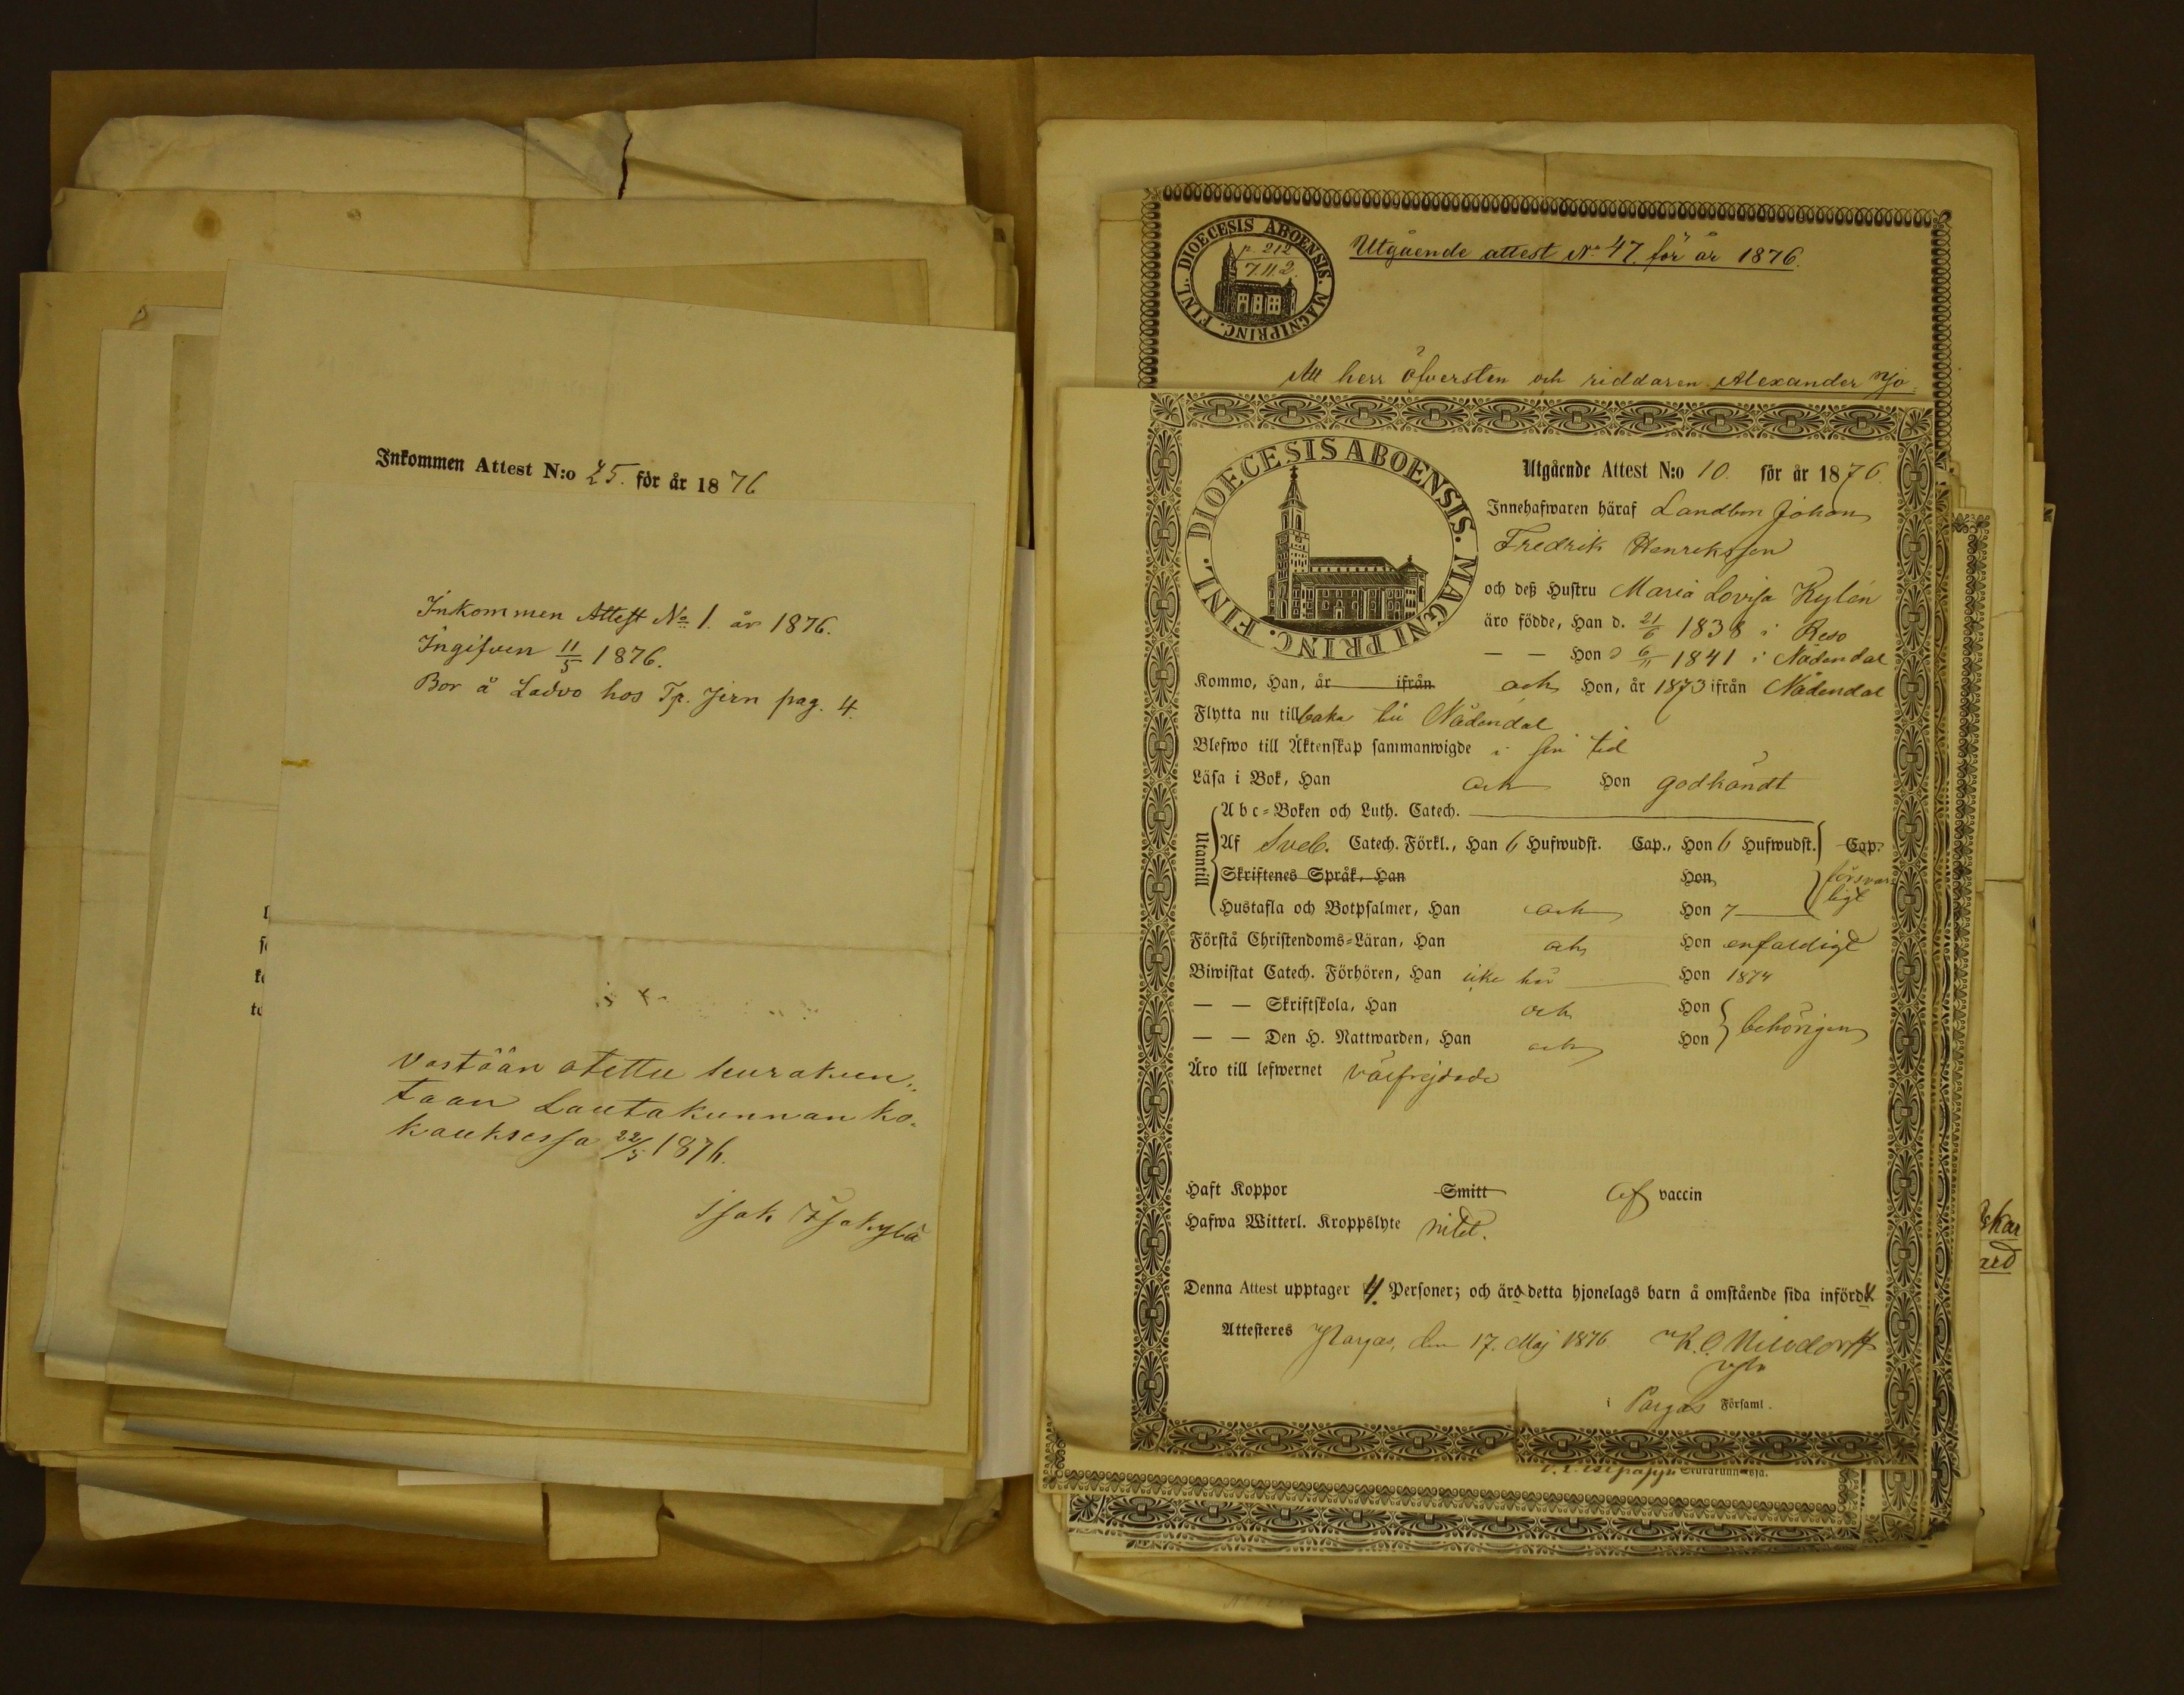 Inkommen Attest N:o 25. för år 1876
Inkommen Attest No 1. år 1876.
Ingifven 11/5 1876.
Bor å Ladvo hos Tp. Jern pag. 4.
Vastaan otettu seurakun-
taan Lautakunnan ko-
kauksessa 22/5 1876.
DIOECESIS ABOENSIS. MAGNI PRINC. FINL.
p. 212
7.112.
Utgående attest No 47. för år 1876.
Att herr öfversten och riddaren Alexander
DIOECESIS ABOENSIS. MAGNI PRINC. FINL.
Utgående Attest N:o 10. för år 1876.
Innehafwaren häraf Landbon Johan
Fredrik Henriksson
och deß Hustru Maria Lovisa Kylén
äro födde, Han d. 21/6 1838 i Reso
— — Hon d 6/11 1841 i Nådendal
Kommo, Han, år ifrån och Hon, år 1873 ifrån Nådendal
Flytta nu tillbaka till Nådendal
Blefwo till Äktenskap sammanwigde i sin tid
Läsa i Bok, Han och Hon godkändt
Utantill
Abc-Boken och Luth. Catech.
Af Sveb. Catech. Förkl., Han 6 Hufwudst. Cap., Hon 6 Hufwudst. Cap.
Skriftenes Språk, Han Hon försvar-
ligt
Hustafla och Botpsalmer, Han och Hon 7
Förstå Christendoms-Läran, Han och Hon enfaldigt
Biwistat Catech. Förhören, Han icke här Hon 1874
— — Skriftskola, Han och Hon
behörigen
— — Den H. Nattwarden, Han och Hon
Äro till lefwernet välfrejdade
Haft Koppor Smitt af vaccin
Hafwa Witterl. Kroppslyte intet.
Denna Attest upptager 4 Personer; och äro detta hjonelags barn å omstående sida införd
Attesteres Pargas, den 17. Maj 1876
i Pargas Församl.
skar
ard